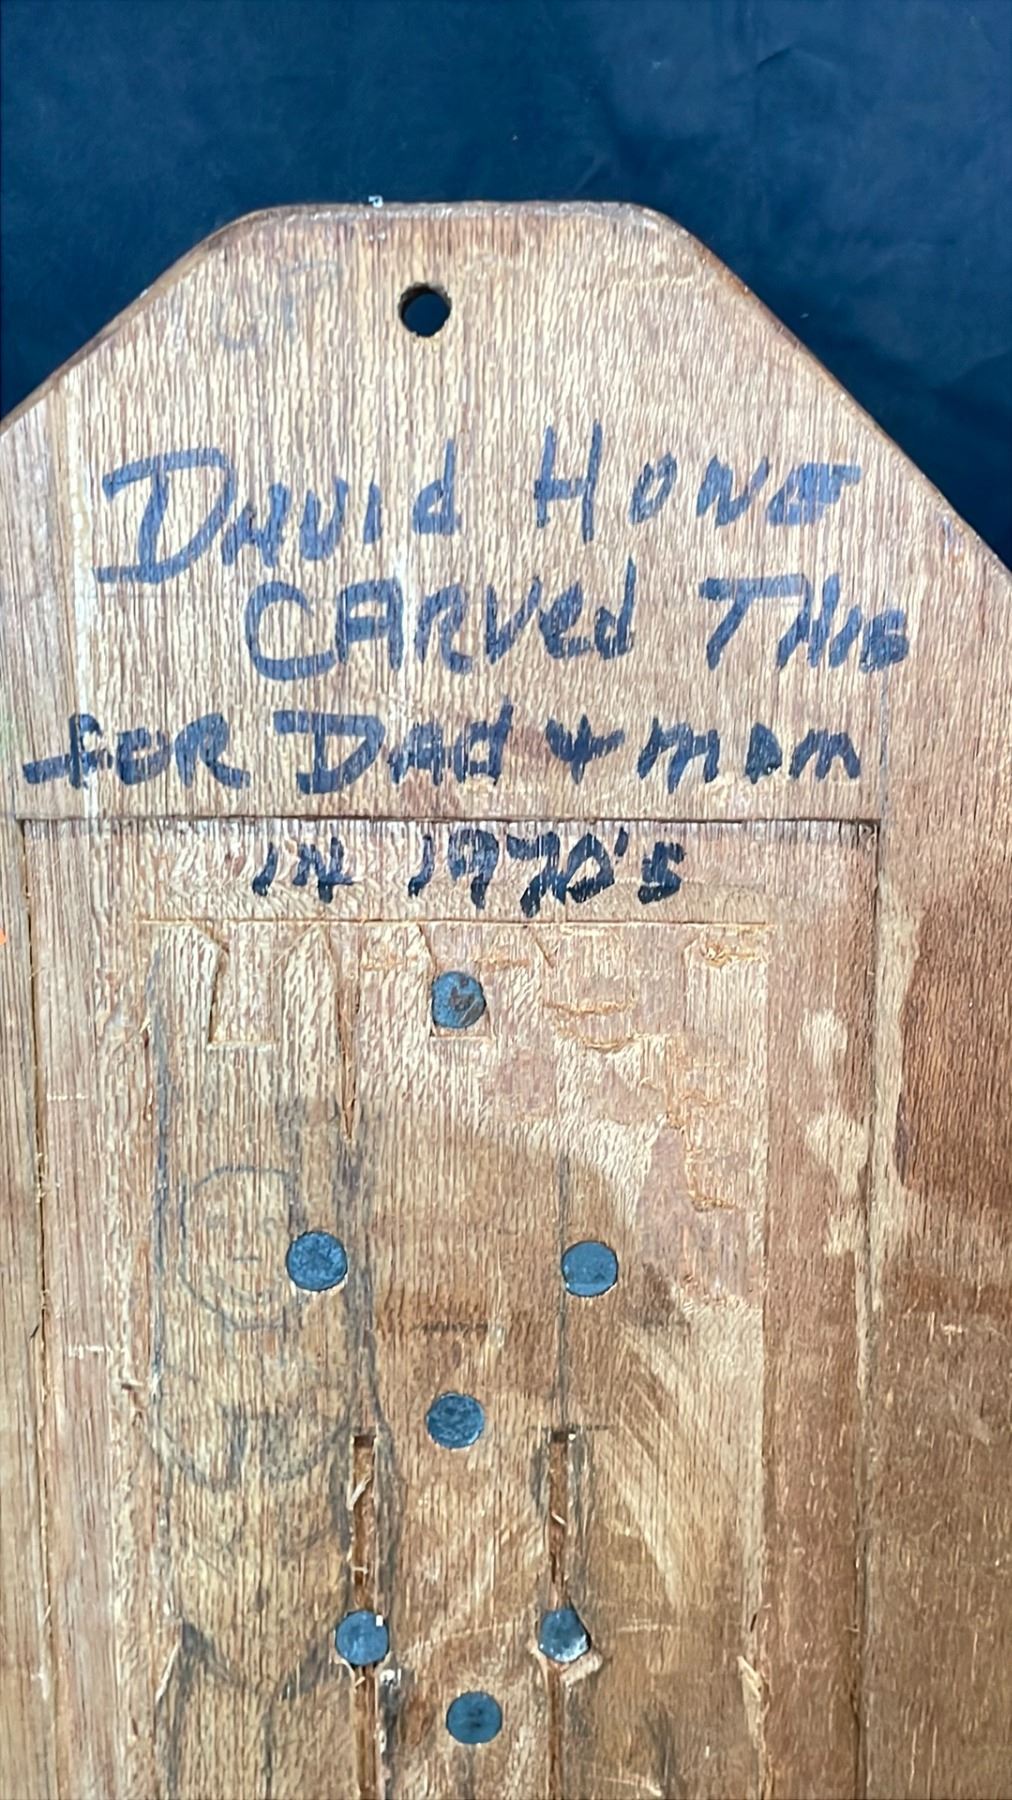 DAVId HONE
CARVed THIS
foR DAd & mom
IN 1970's